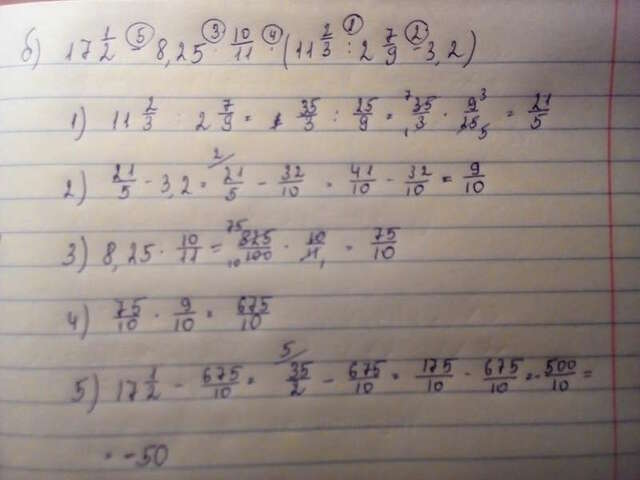 б) 17 1/2 ⑤ - 8,25 ③ · 10/11 ④ · (11 2/3 ① : 2 7/9 ② - 3,2)
1) 11 2/3 : 2 7/9 = 35/3 : 25/9 = 7 35/3 1 · 9 3/25 5 = 21/5
2) 21/5 - 3,2 = 2/ 21/5 - 32/10 = 41/10 - 32/10 = 9/10
3) 8,25 · 10/11 = 75 825/100 10 · 10/11 1 = 75/10
4) 75/10 · 9/10 = 675/10
5) 17 1/2 - 675/10 = 5/ 35/2 - 675/10 = 175/10 - 675/10 = -500/10 =
= -50